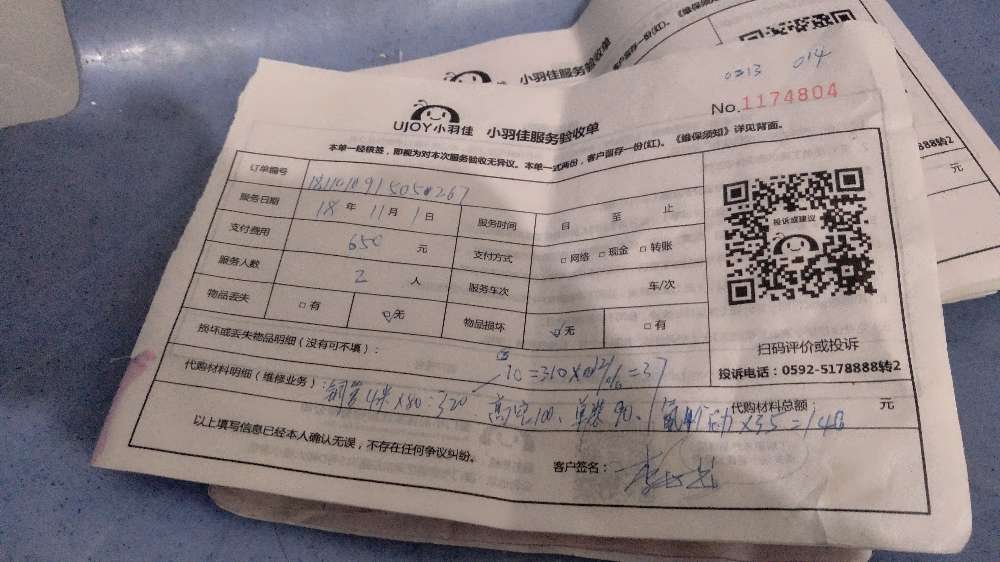 小羽佳服务验收单
份(红)。《维保须知》
0213 014
No.1174804
UJOY小羽佳 小羽佳服务验收单
本单一经核签，即视为对本次服务验收无异议。本单一式两份，客户留存一份(红)。《维保须知》详见背面。
订单编号
服务日期 18 年 11 月 1 日 服务时间 自 至 止
支付费用 650 元 支付方式 □网络 □现金 □转账
服务人数 2 人 服务车次 车/次
物品丢失 □有 无 物品损坏 无 □有
投诉或建议
扫码评价或投诉
投诉电话：0592-5178888转2
损坏或丢失物品明细（没有可不填）：
代购材料明细（维修业务） 铜管4米×80=320 10=310×012%=37
高空100、单装90、 ×35=140
代购材料总额： 元
以上填写信息已经本人确认无误，不存在任何争议纠纷。
客户签名：
8888转2
元